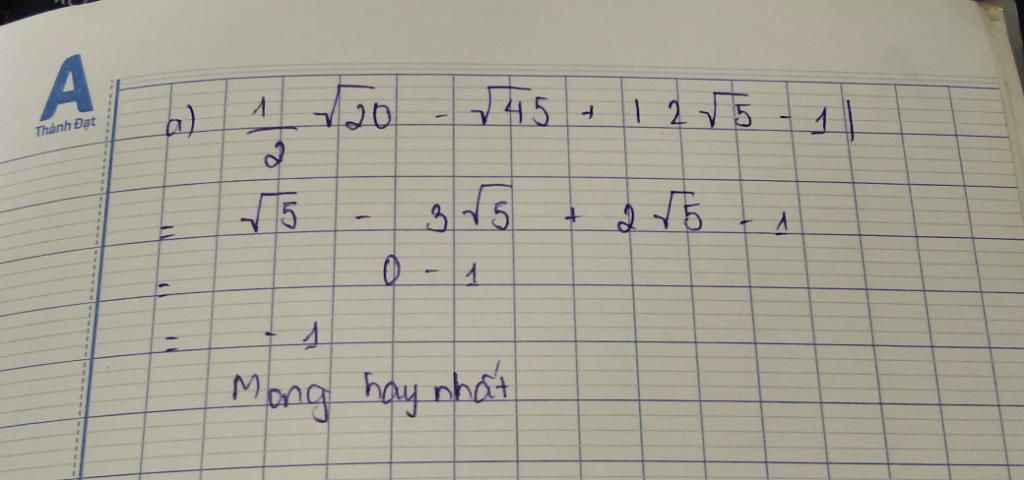 A
Thành Đạt
a) 1/2 √20 - √45 + |2√5 - 1|
= √5 - 3√5 + 2√5 - 1
= 0 - 1
= - 1
Mong hay nhất